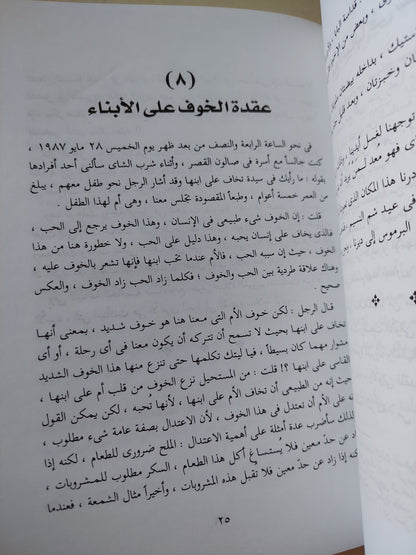 (٨)
عقدة الخوف على الأبناء
فى نحو الساعة الرابعة والنصف من بعد ظهر يوم الخميس ٢٨ مايو ١٩٨٧ ،
كنت جالساً مع أسرة فى صالون القصر ، وأثناء شرب الشاى سألنى أحد أفرادها
بقوله : ما رأيك فى سيدة تخاف على ابنها وقد أشار الرجل نحو طفل معهم ، يبلغ
من العمر خمسة أعوام ، وطبعاً المقصودة تجلس معنا ، وهى أم لهذا الطفل .
قلت : إن الخوف شىء طبيعى فى الإنسان ، وهذا الخوف يرجع إلى الحب ،
فالذى يخاف على إنسان يحبه ، وهذا دليل على الحب ، ولا خطورة هنا من هذا
الخوف ، حيث إن سببه الحب ، فالأم عندما تحب ابنها فإنها تشعر بالخوف عليه ،
وهناك علاقة طردية بين الحب والخوف ؛ فكلما زاد الحب زاد الخوف ، والعكس
صحيح .
قال الرجل : لكن خوف الأم التى معنا هنا هو خوف شديد ، بمعنى أنهـا
تخاف على ابنها بحيث لا تسمح أن تتركه أن يكون معنا فى أى رحلة ، أو أى
مشوار مهما كان بسيطاً ، فيا ليتك تكلمها حتى تنزع منها هذا الخوف الشديد
القاسى على ابنها ؟! قلت : من المستحيل نزع الخوف من قلب أم على ابنها ،
حيث إنه من الطبيعى أن تخاف الأم على ابنها ، لأنها تُحبه ، لكن يمكن القول
على الأم أن تعتدل فى هذا الخوف ، لأن الاعتدال بصفة عامة شىء مطلوب ،
لذلك سأضرب عدة أمثلة على أهمية الاعتدال : الملح ضرورى للطعام ، لكنه إذا
زاد عن حدّ معين فلا يُستساغ أكل هذا الطعام ، السكر مطلوب للمشروبات ،
لكنه إذا زاد عن حد معين فلا تُقبل هذه المشروبات ، وأخيراً مثال الشمعة ، فعندما
٢٥
توجهنا لغسل أيدينا